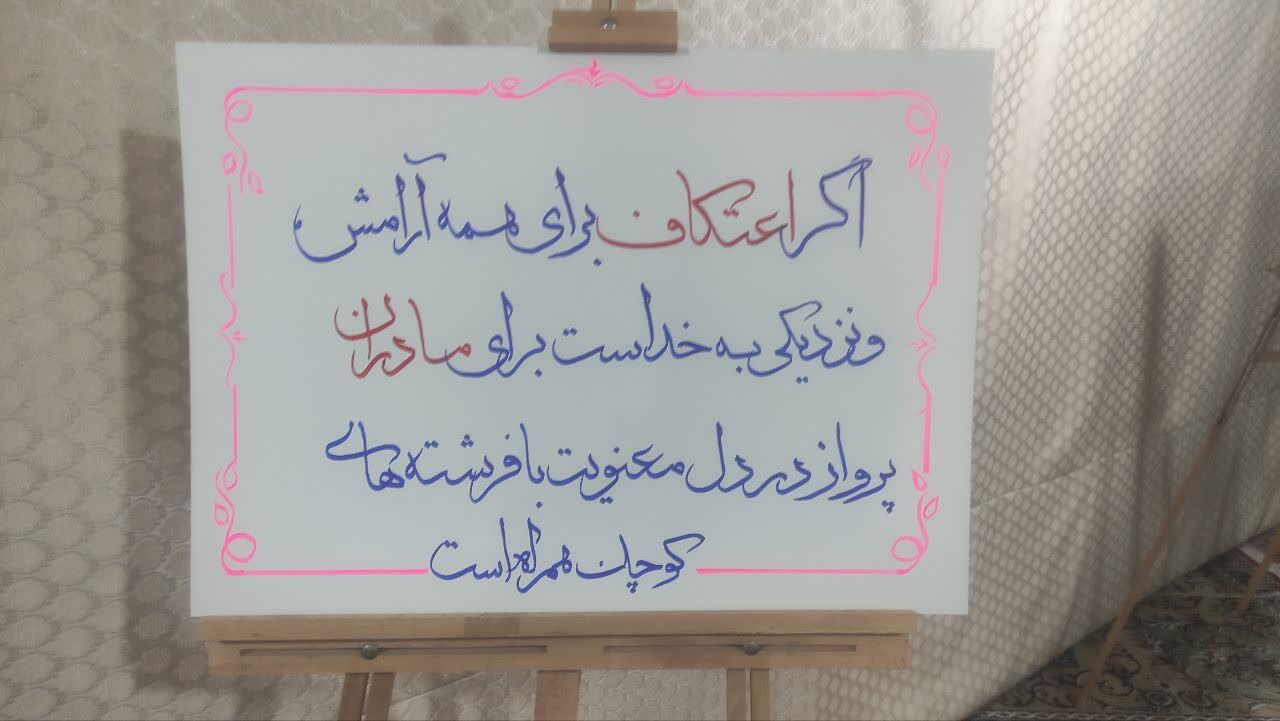 اگر اعتکاف برای همه آرامش،
و نزدیکی به خداست برای مادران
پرواز در دل معنویت با فرشته های
کوچک همراه است